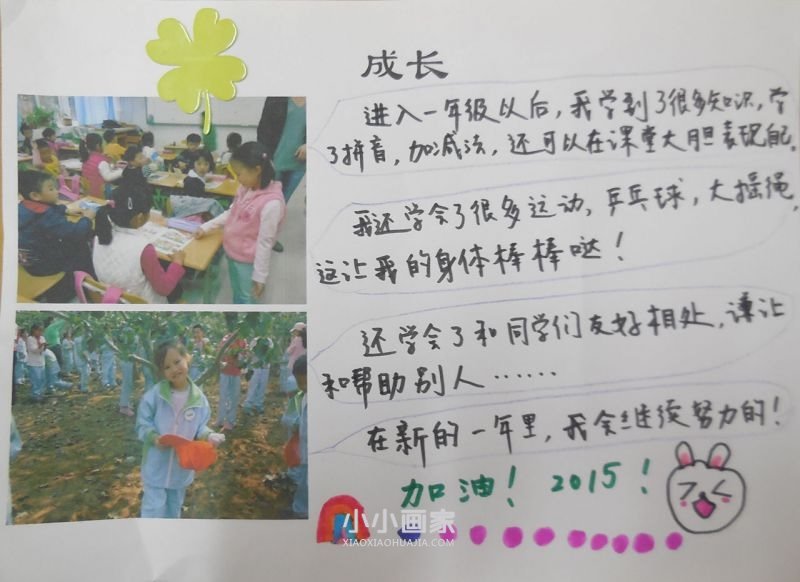 成长
进入一年级以后，我学到了很多知识，学
了拼音，加减法，还可以在课堂大胆表现自己。
我还学会了很多运动，乒乓球，大摇绳，
这让我的身体棒棒哒！
还学会了和同学们友好相处，谦让
和帮助别人……
在新的一年里，我会继续努力的！
加油！2015！
小小画家
XIAOXIAOHUAJIA.COM